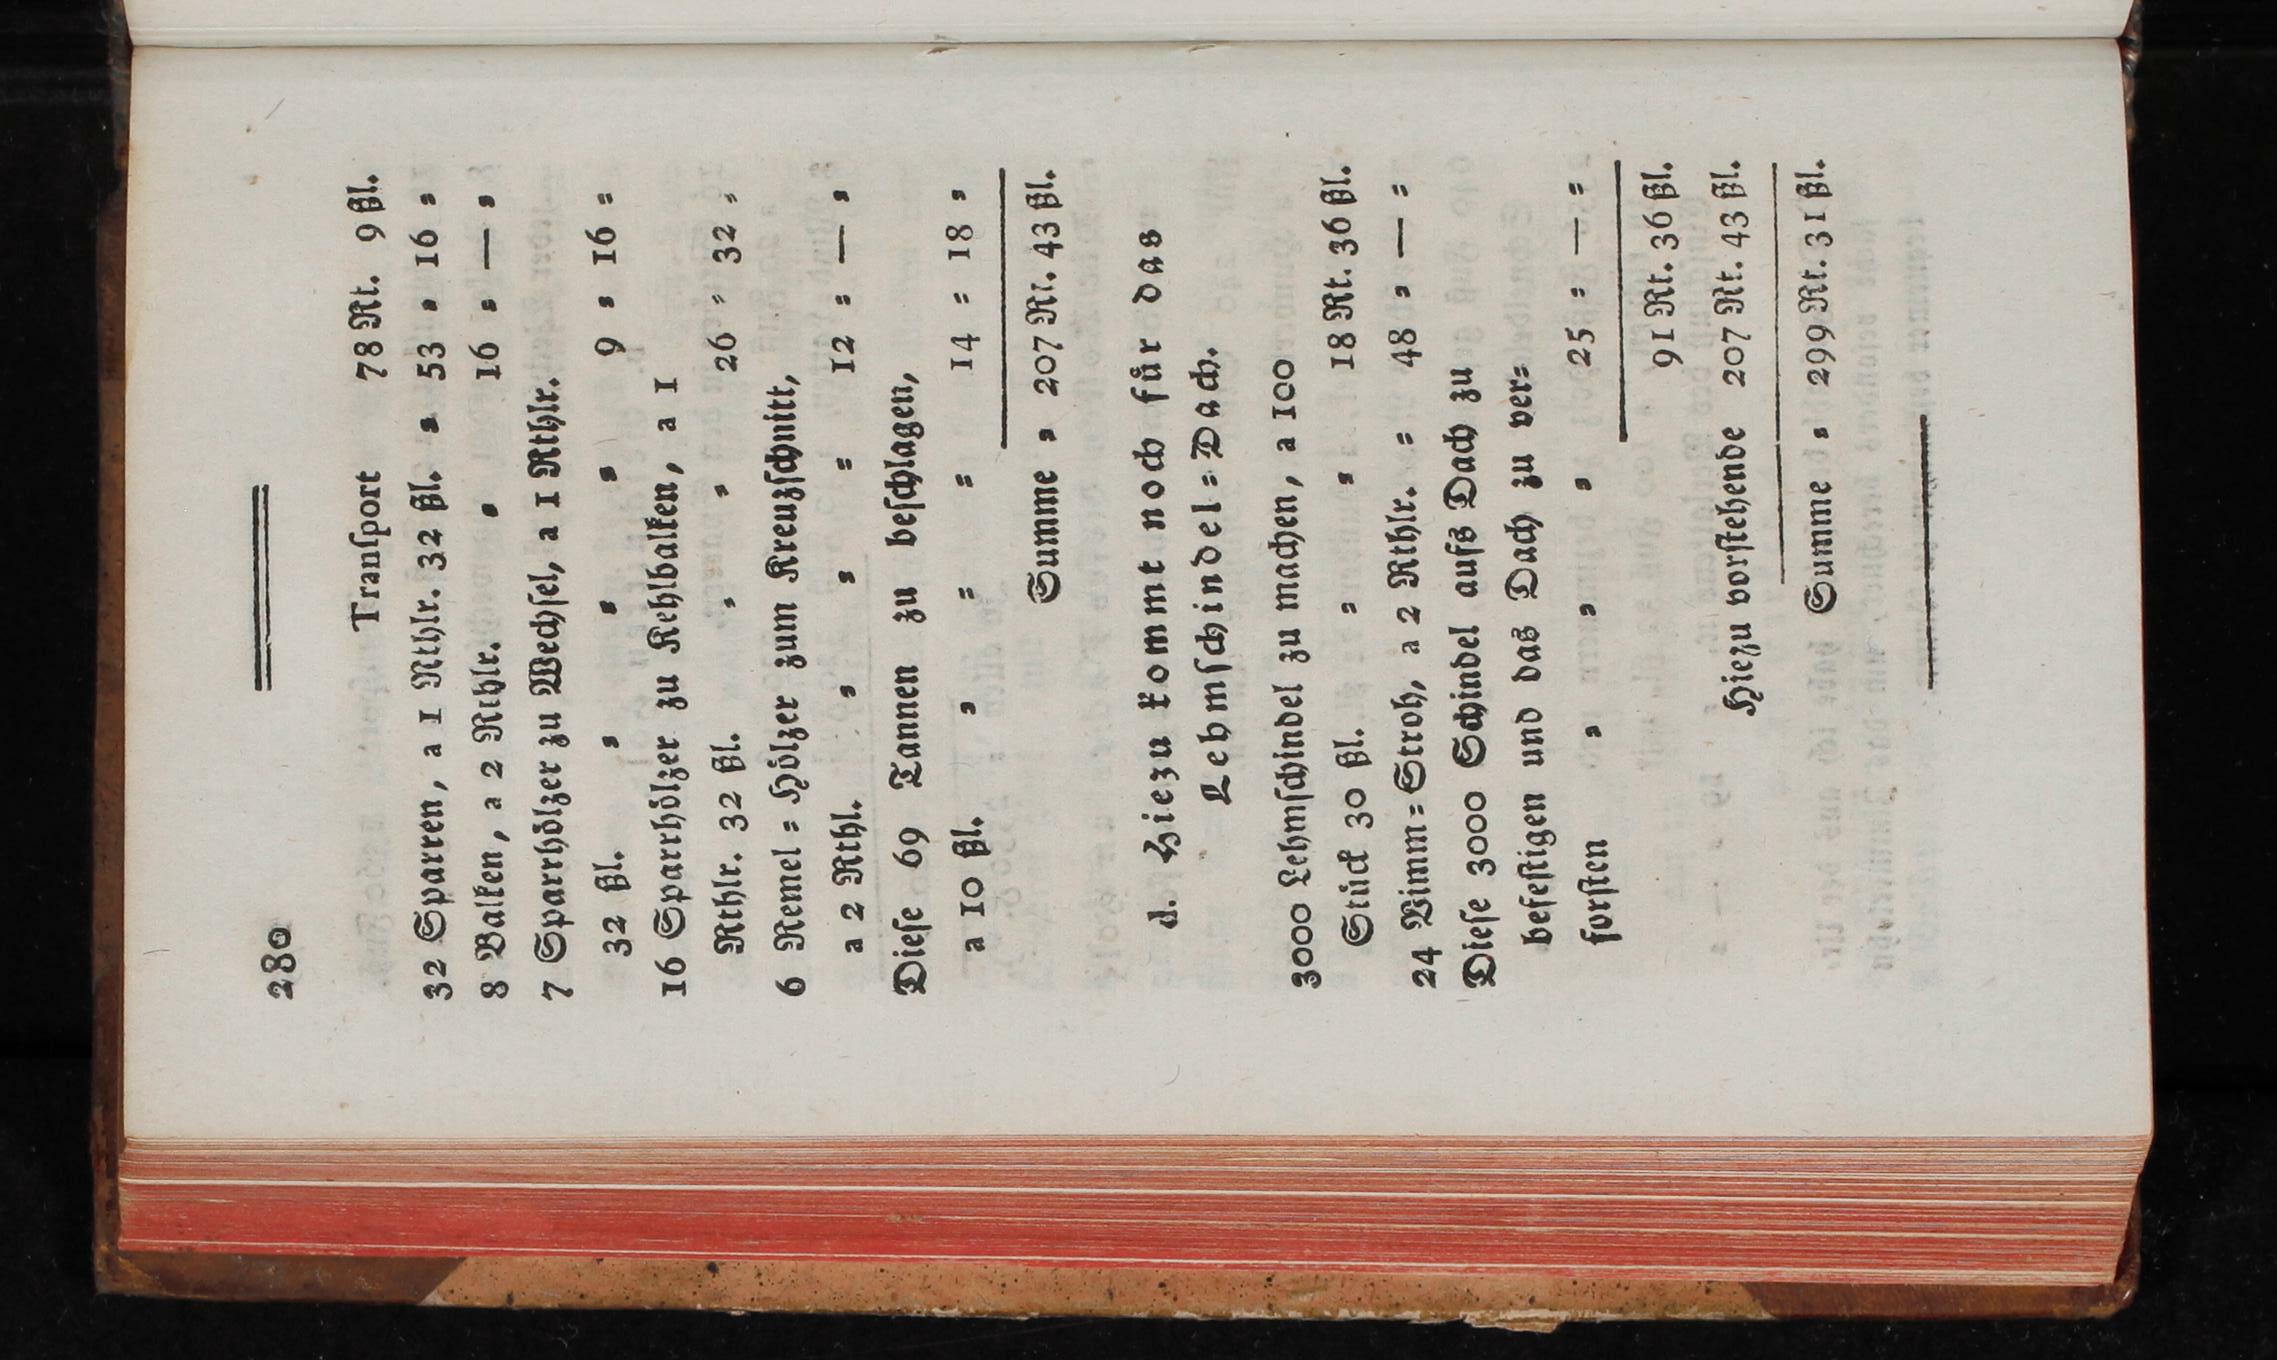 280
Transport 78 Rt. 9 ßl.
32 Sparren, a 1 Rthlr. 32 ßl. = = 53 = 16 =
8 Balken, a 2 Rthlr. = 16 = — =
7 Sparrhölzer zu Wechsel, a 1 Rthlr.
32 ßl. = = = 9 = 16 =
16 Sparrhölzer zu Kehlbalken, a 1
Rthlr. 32 ßl. = = 26 = 32 =
6 Remel = Hölzer zum Kreuzschnitt,
a 2 Rthl. = = = 12 = — =
Diese 69 Tannen zu beschlagen,
a 10 ßl. = = = 14 = 18 =
Summe = 207 Rt. 43 ßl.
d. Hiezu kommt noch für das
Lehmschindel = Dach.
3000 Lehmschindel zu machen, a 100
Stück 30 ßl. = = 18 Rt. 36 ßl.
24 Vimm = Stroh, a 2 Rthlr. = 48 = — =
Diese 3000 Schindel aufs Dach zu
befestigen und das Dach zu ver=
forsten = = = 25 = — =
91 Rt. 36 ßl.
Hiezu vorstehende 207 Rt. 43 ßl.
Summe = 299 Rt. 31 ßl.